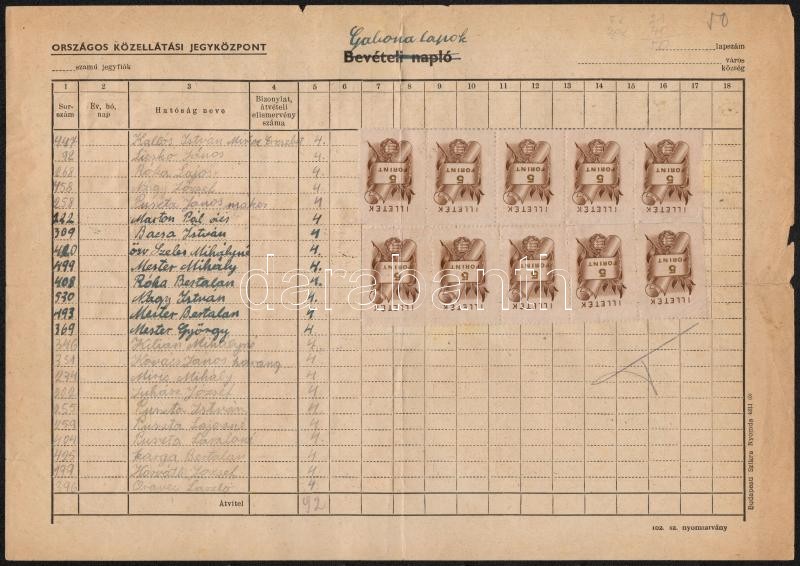 Gabona lapok
50
ORSZÁGOS KÖZELLÁTÁSI JEGYKÖZPONT
Bevételi napló
lapszám
számú jegyfiók
város
község
1 2 3 4 5 6 7 8 9 10 11 12 13 14 15 16 17 18
Sor-
szám
Év, hó,
nap
Hatóság neve
Bizonylat,
átvételi
elismervény
száma
447 Kallós István 4.
92 János 4.
268 Róka Lajos 4.
458 Nagy József 4.
258 Puszta János 4.
222 Marton Pál 4
309 Bacsa István 4.
420 özv Szeles Mihályné 4.
499 Mester Mihály 4.
408 Róka Bertalan 4.
530 Nagy István 4.
493 Mester Bertalan 4.
369 Mester György 4
346 Kilián Mihályné 4
351 Kovács János harang 4
274 Mihály 4
202 Juhász József 4
255 Puszta István 4
259 Puszta Lajosné 4
404 Puszta 4
425 Varga Bertalan 4
199 Horváth József 4
396 László 4
Átvitel 92
ILLETÉK 5 FORINT
ILLETÉK 5 FORINT
ILLETÉK 5 FORINT
ILLETÉK 5 FORINT
ILLETÉK 5 FORINT
ILLETÉK 5 FORINT
ILLETÉK 5 FORINT
ILLETÉK 5 FORINT
ILLETÉK 5 FORINT
ILLETÉK 5 FORINT
darabanth
102. sz. nyomtatvány
Budapesti Szikra Nyomda